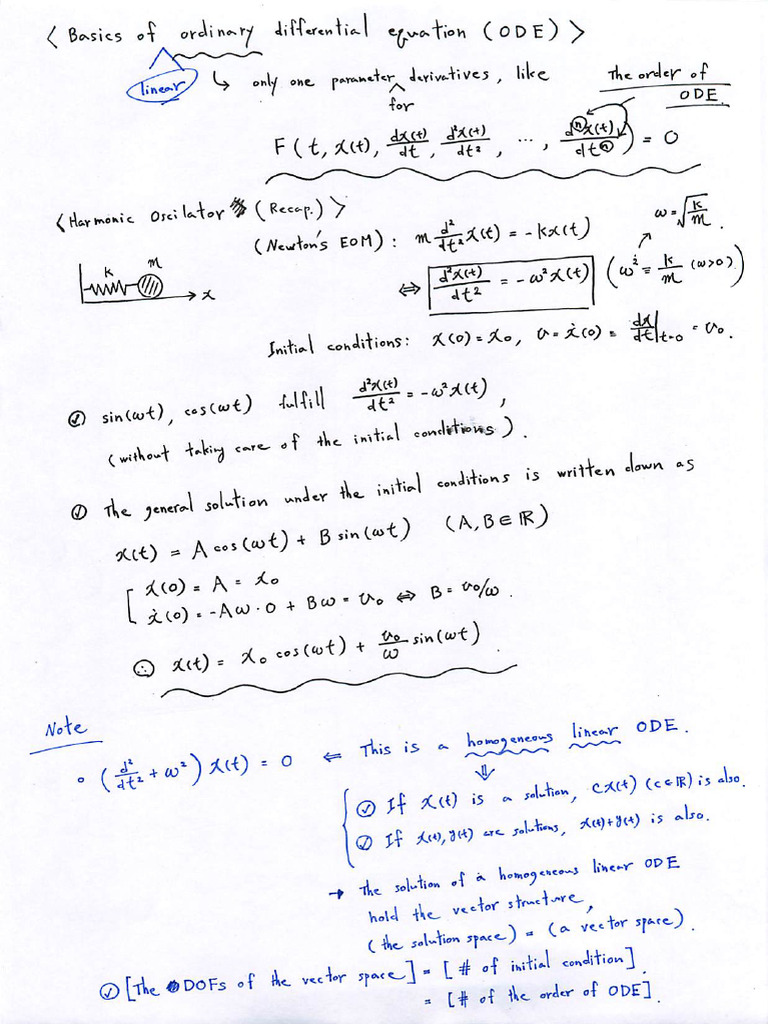 < Basics of ordinary differential equation (ODE) >
linear
↳ only one parameter derivatives, like
for
The order of
ODE.
F(t, x(t), dx(t)/dt, d²x(t)/dt², ..., dⁿx(t)/dtⁿ) = 0
<Harmonic Oscilator (Recap.)>
(Newton's EOM): m d²/dt² x(t) = -kx(t)
ω = √(k/m).
k m x
⇔ d²x(t)/dt² = -ω²x(t) (ω² = k/m (ω>0))
Initial conditions: x(0) = x₀, v = ẋ(0) = dx/dt|t=0 = v₀.
✓ sin(ωt), cos(ωt) fulfill d²x(t)/dt² = -ω²x(t),
(without taking care of the initial conditions).
✓ The general solution under the initial conditions is written down as
x(t) = A cos(ωt) + B sin(ωt) (A, B ∈ ℝ)
x(0) = A = x₀
ẋ(0) = -Aω·0 + Bω = v₀ ⇔ B = v₀/ω.
∴ x(t) = x₀ cos(ωt) + v₀/ω sin(ωt).
Note
∘ (d²/dt² + ω²) x(t) = 0 ⇐ This is a homogeneous linear ODE.
⇓
✓ If x(t) is a solution, cx(t) (c∈ℝ) is also.
✓ If x(t), y(t) are solutions, x(t)+y(t) is also.
→ The solution of a homogeneous linear ODE
hold the vector structure,
(the solution space) = (a vector space).
✓ [The DOFs of the vector space] = [# of initial condition].
= [# of the order of ODE].